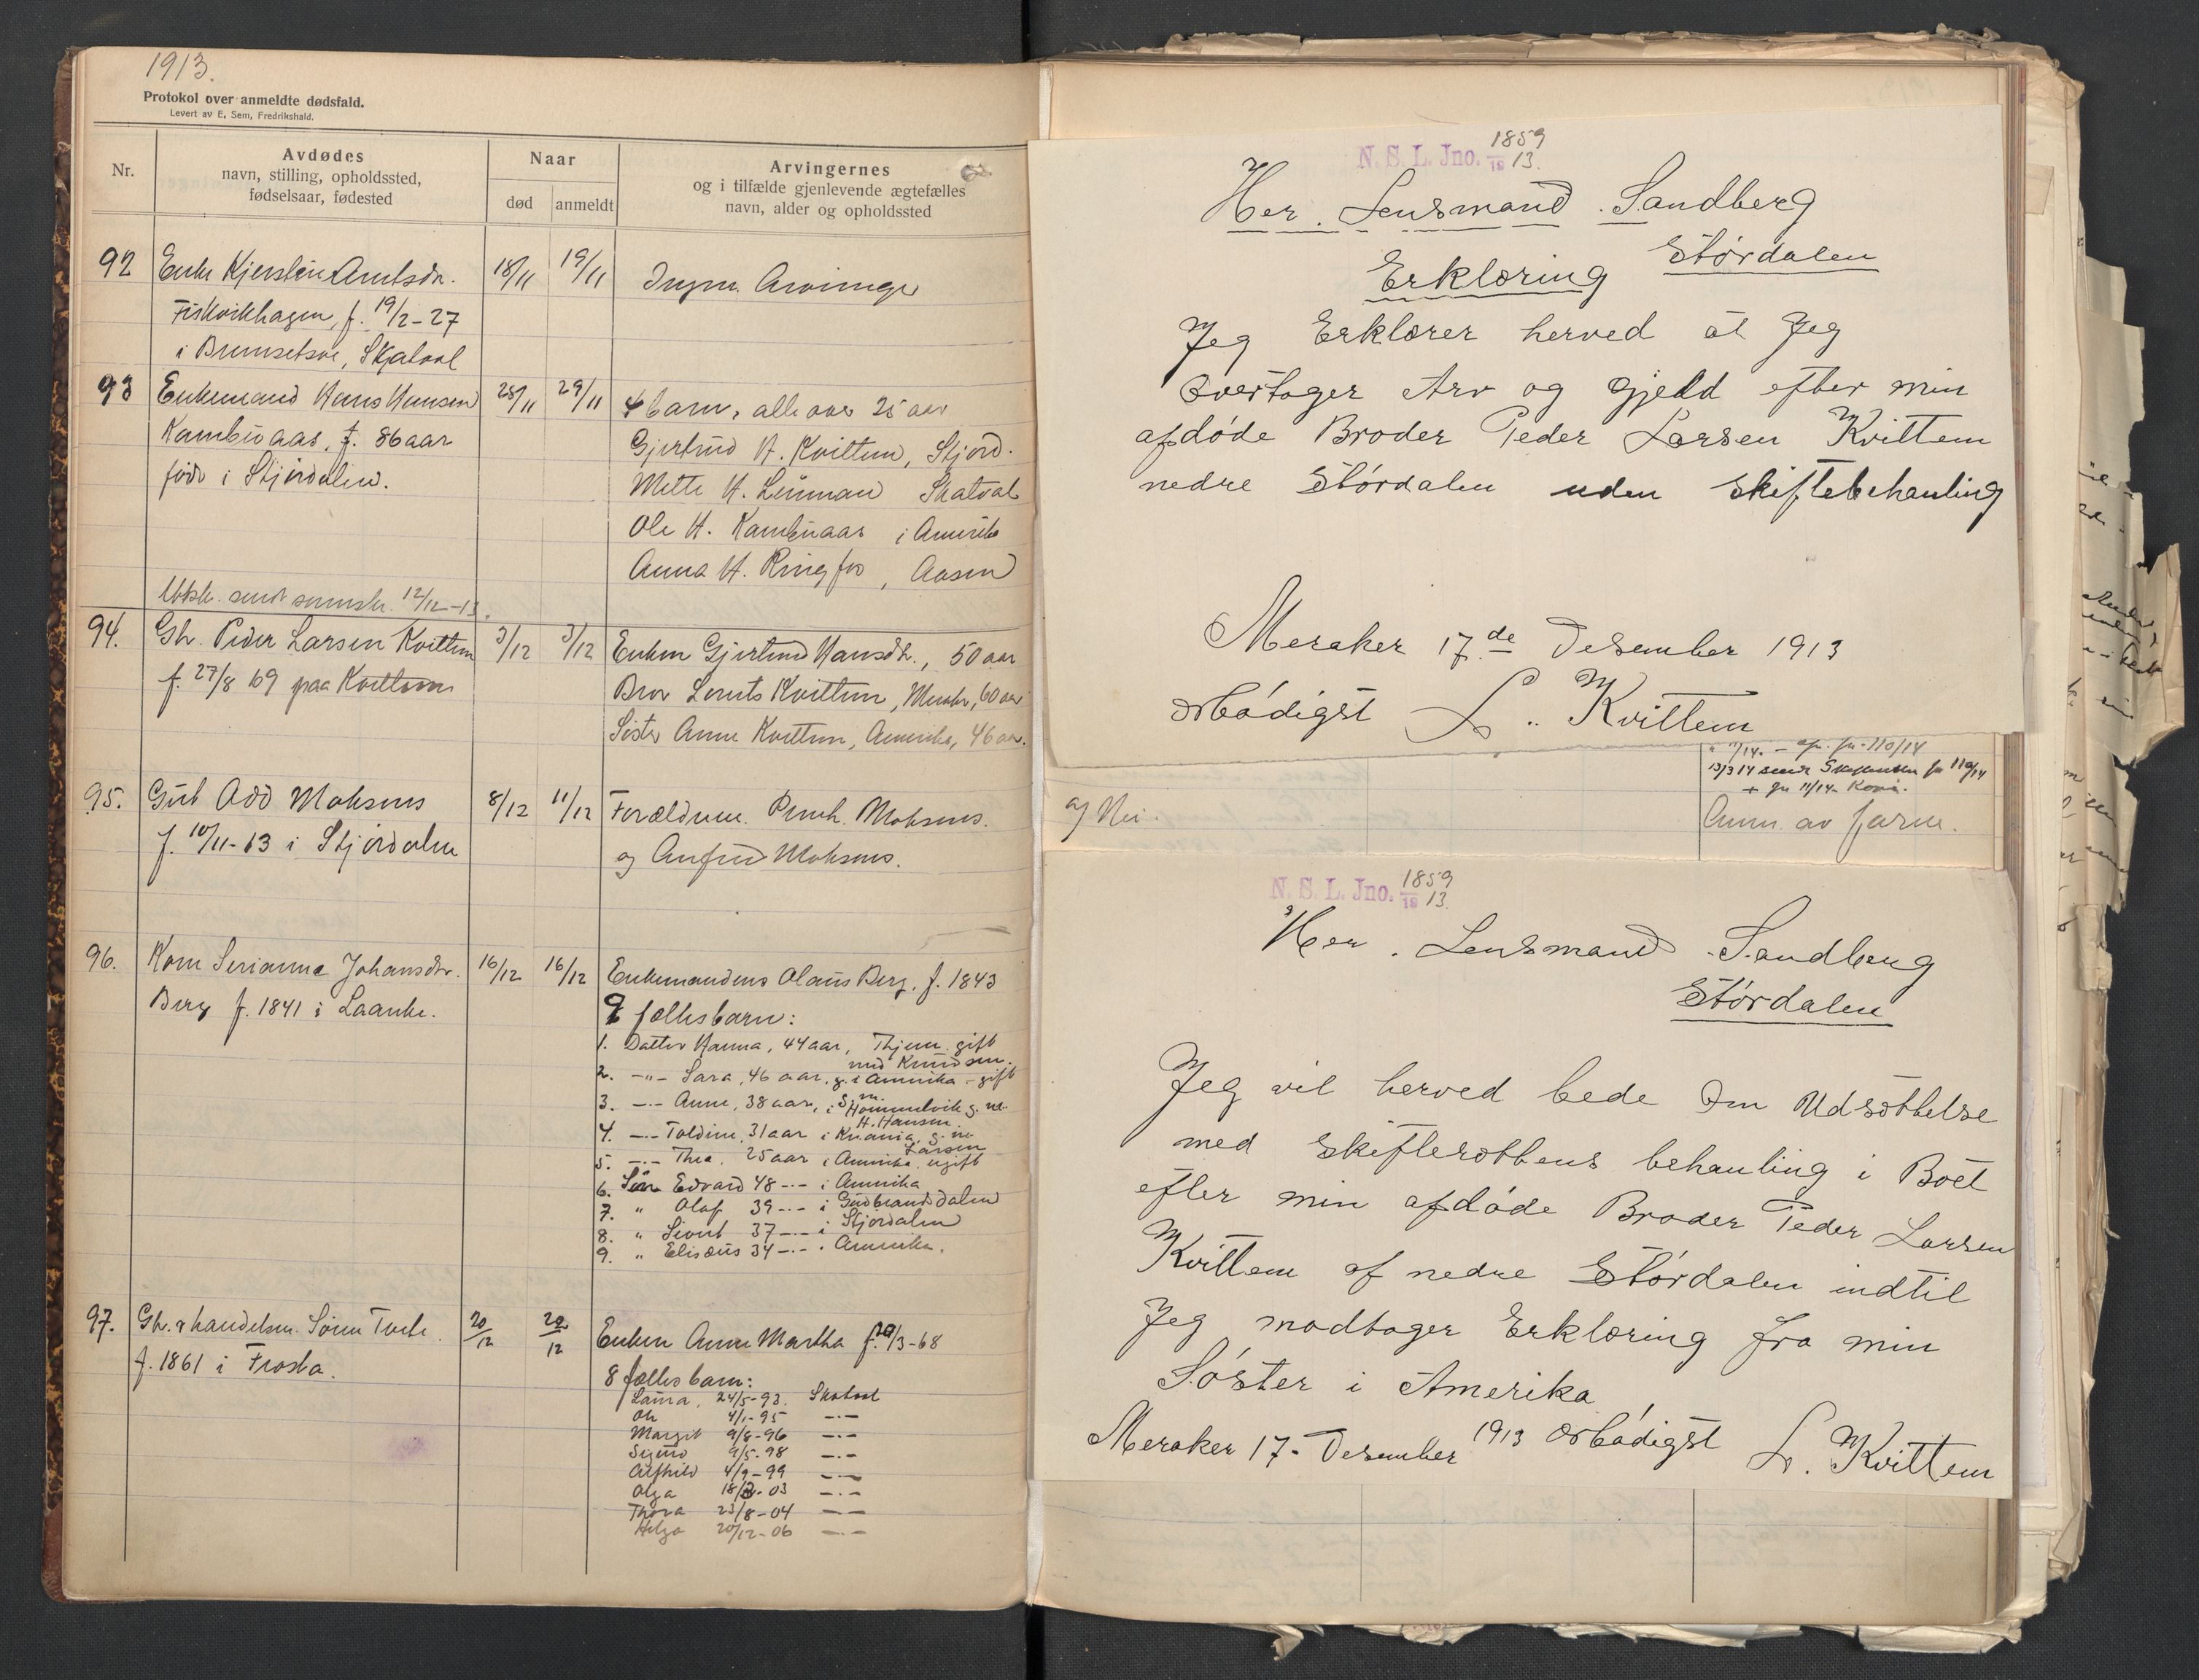 1913.
Protokol over anmeldte dødsfald.
Levert av E. Sem, Fredrikshald.
Nr.
Avdødes
navn, stilling, opholdssted,
fødselsaar, fødested
Naar
død
anmeldt
Arvingernes
og i tilfælde gjenlevende ægtefælles
navn, alder og opholdssted
92 Enke Kjerstine Arntsdr. 18/11 19/11 Ingen Arvinger
Fiskvikhagen, f. 19/2-27
i Skatval
93 Enkemand Hans Hansen 28/11 29/11 4 barn, alle over 25 aar
Kambuaas, f. 86 aar
født i Stjørdalen.
Gjertrud H. Kvittem, Stjørd.
Mette H. Leinman Skatval
Ole H. Kambuaas i Amerika
Anna H. Ringfor, Aasen
sendt 12/12-13.
94. Gbr. Peder Larsen Kvittem 3/12 3/12 Enken Gjertrud Hansdtr., 50 aar
f. 27/8 69 paa Kvittem
Bror Lorents Kvittem, Meraker, 60 aar
Søster Anne Kvittem, Amerika, 46 aar.
95. Gut Odd Moksnes 8/12 11/12 Forældrene Moksnes.
f. 10/11-13 i Stjørdalen
og Anfrid Moksnes.
96. Kone Serianna Johansdtr. 16/12 16/12 Enkemanden Olaus Berg, f. 1843
Berg f. 1841 i Laanke.
9 fællesbarn:
1. Datter Hanna, 44 aar, Thjem gift
med Knudsen.
2. -"- Sara, 46 aar, g. i Amerika - gift
3. -"- Anne, 38 aar, i Hommelvik g. m.
H. Hansen
4. -"- Toldine, 31 aar i Kr.ania, g. m.
Larsen
5. -"- Thea, 25 aar i Amerika, ugift
6. Søn Edvard 48 -"- i Amerika
7. " Olaf 39 -"- i Gudbrandsdalen
8. " Sivert 37 -"- i Stjørdalen
9. " Elisæus 34 -"- . Amerika.
97. Gbr. & handelsm. Søren 20/12 20/12 Enken Anne Martha f. 20/3-68
f. 1861 i Frosta.
8 fælles barn:
Laura, 24/5-93. Skatval
Ole 4/1-95 -"-
Margit 9/8-96 -"-
Sigurd 9/5-98 -"-
Alfhild 4/9-99 -"-
Olga 18/3-03 -"-
Thora 23/8-04 -"-
Helga 20/12-06 -"-
N. S. L. Jno. 1859/1913.
Her. Lensmand Sandberg
Størdalen
Erklæring
Jeg Erklærer herved at Jeg
overtager Arv og Gjeld efter min
afdøde Broder Peder Larsen Kvittem
nedre Størdalen uden skiftebehanling
Meraker 17de Desember 1913
ærbødigst L. Kvittem
13/3 14 sendt 110/14
+ jn 11/14
og Nei.
Anm. av faren.
N. S. L. Jno. 1859/1913.
Her. Lensmand Sandberg
Størdalen
Jeg vil herved bede om Udsættelse
med skifterættens behanling i Boet
efter min afdøde Broder Peder Larsen
Kvittem af nedre Størdalen indtil
Jeg modtager Erklæring fra min
Søster i Amerika
Meraker 17- Desember 1913 ærbødigst L. Kvittem